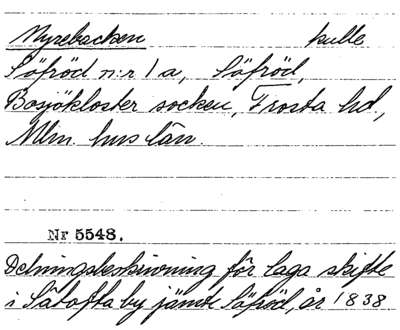 Myrebacken kulle
Söfröd n:r 1 a, Söfröd,
Bosjökloster socken, Frosta hd.,
Mlm. hus län.
Nr 5548.
Delningsbeskrivning för laga skifte
i Sätofta by jämte Söfröd, år 1838